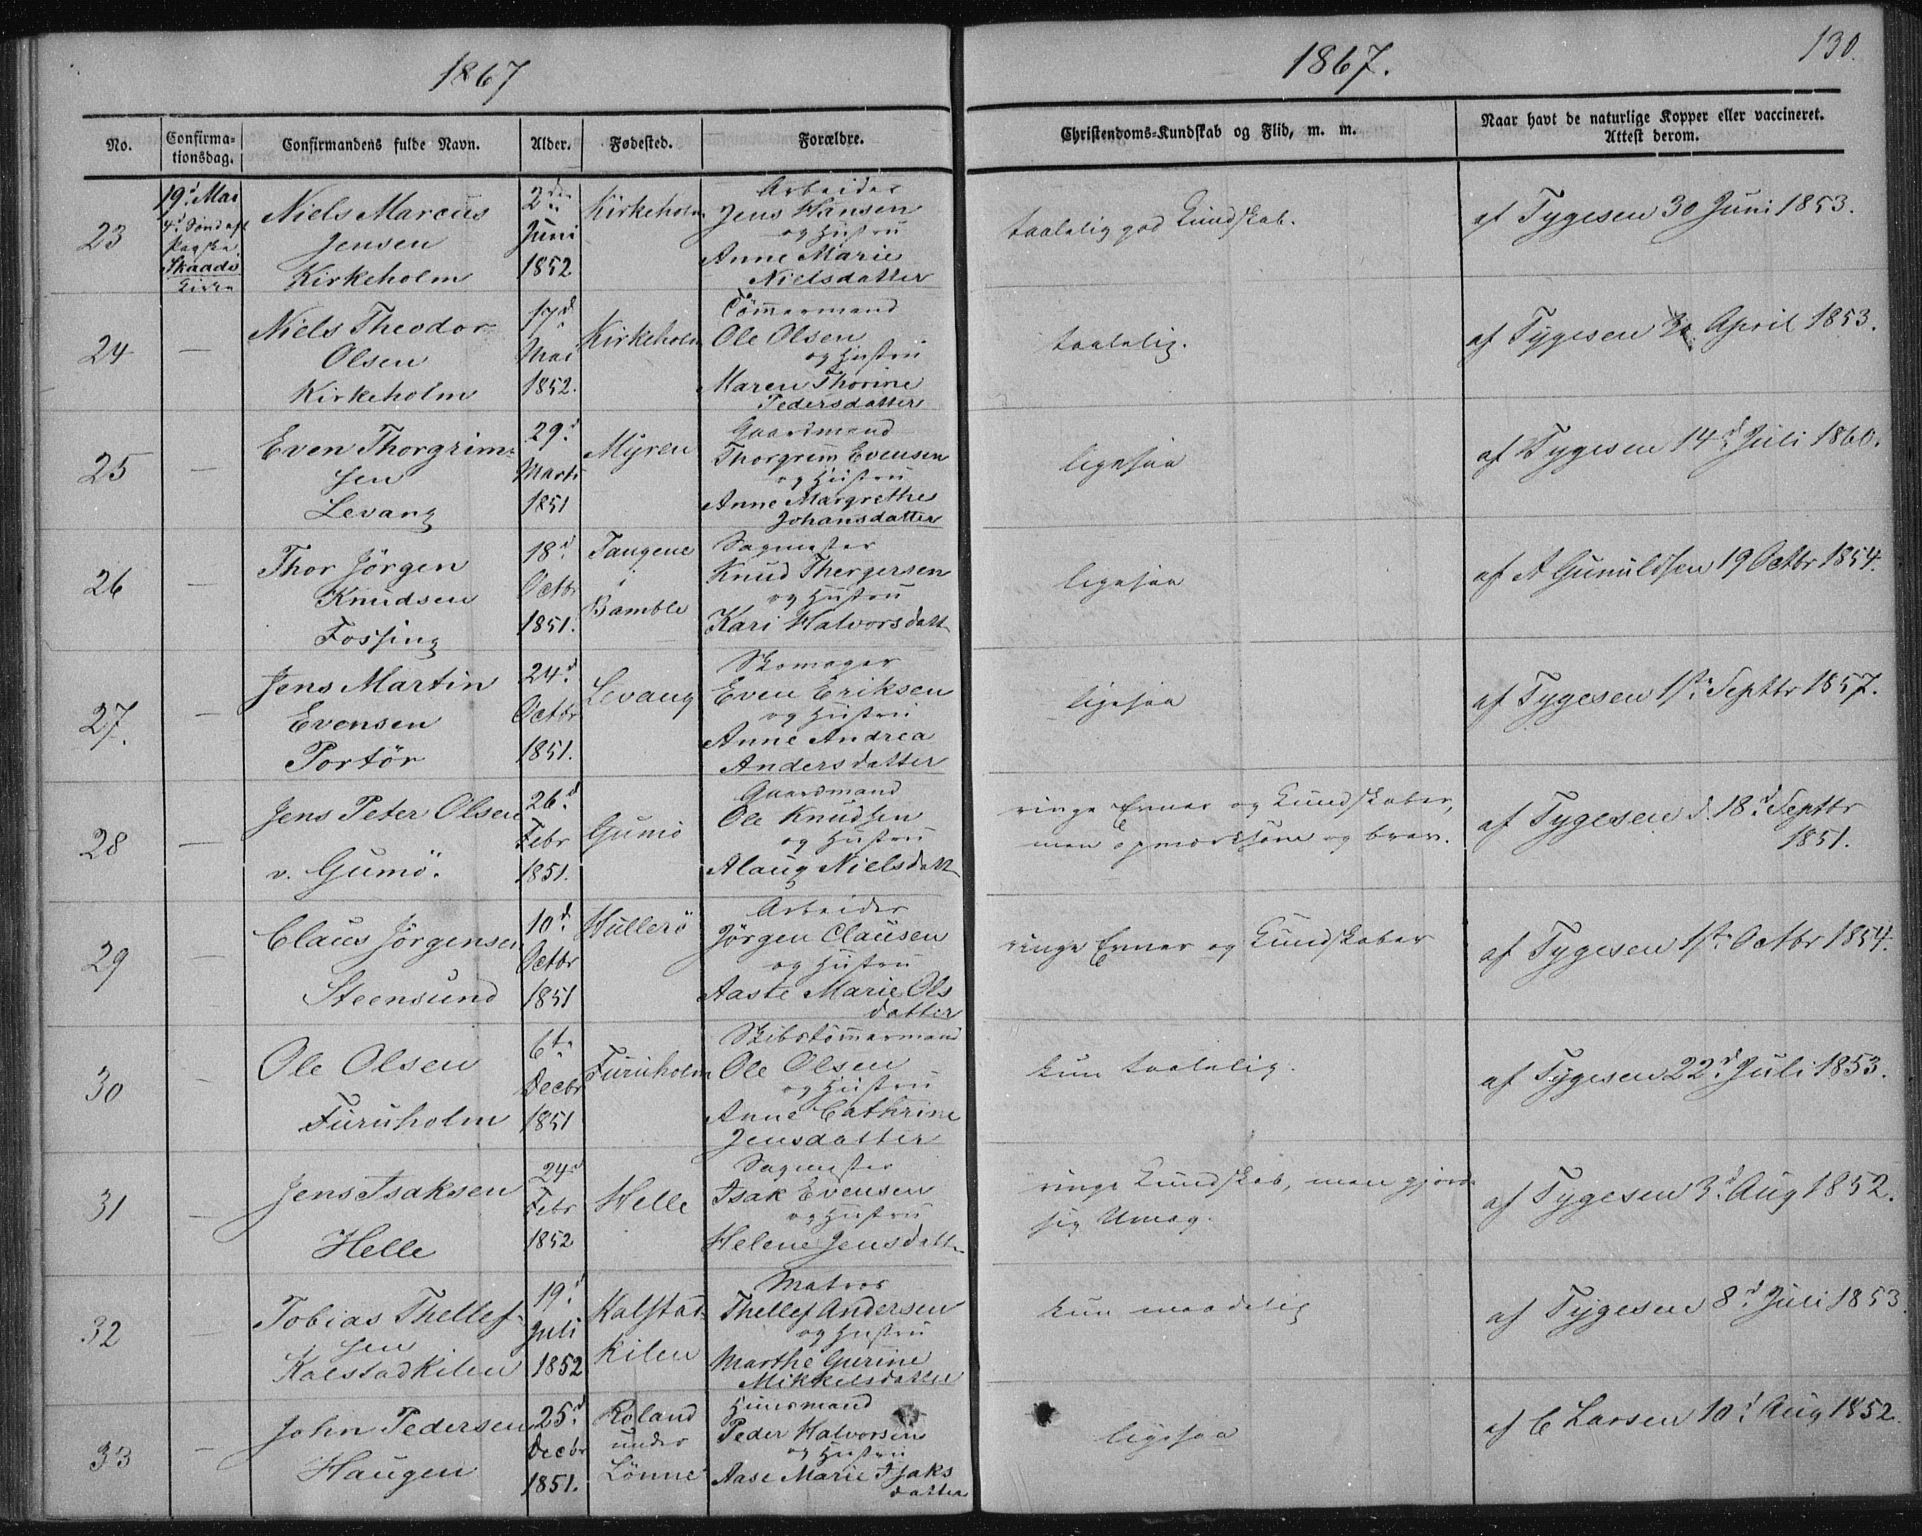 1867
1867.
130.
No.
Confirma-
tionsdag.
Confirmandens fulde Navn.
Alder.
Fødested.
Forældre.
Christendoms-Kundskab og Flid, m. m.
Naar havt de naturlige Kopper eller vaccineret.
Attest derom.
23
19d Mai
4d Sønd eft
Paaske
Skaadö
Kirke
Niels Marcus
Jensen
Kirkeholm
2den
Juni
1852
Kirkeholm
Arbeider
Jens Hansen
og Hustru
Anne Marie
Nielsdatter
taalelig god Kundskab.
af Tygesen 30 Juni 1853.
24
—
Niels Theodor
Olsen
Kirkeholm
17d
Mai
1852.
Kirkeholm
Tömmermand
Ole Olsen
og Hustru
Maren Thorine
Pedersdatter
taalelig.
af Tygesen April 1853.
25
—
Even Thorgrim-
sen
Levang
29d
Marts
1851
Myren
Gaardmand
Thorgrim Evensen
og Hustru
Anne Margrethe
Johansdatter
ligesaa
af Tygesen 14d Juli 1860.
26
—
Thor Jörgen
Knudsen
Fossing
18d
Octbr
1851.
Tangene
i
Bamble
Sagmester
Knud Thergersen
og Hustru
Kari Halvorsdatt
ligesaa
af A Gunuldsen 19 Octbr 1854.
27.
—
Jens Martin
Evensen
Portör
24d
Octbr
1851.
Levang
Skomager
Even Eriksen
og Hustru
Anne Andrea
Andersdatter
ligesaa
af Tygesen 1ste Septbr 1857.
28
—
Jens Peter Olsen
v. Gumö.
26d
Febr
1851.
Gumö
Gaardmand
Ole Knudsen
og Hustru
Alaug Nielsdatt
ringe Evner og Kundskaber,
men opmærksom og brav.
af Tygesen d. 18d Septbr
1851.
29
—
Claus Jörgensen
Steensund
10d
Octbr
1851
Hullerö
Arbeider
Jörgen Clausen
og Hustru
Aaste Marie Ols
datter
ringe Evner og Kundskaber
af Tygesen 1ste Octbr 1854.
30
—
Ole Olsen
Furuholm
6te
Decbr
1851
Furuholm
Skibstömmermand
Ole Olsen
og Hustru
Anne Cathrine
Jensdatter
kun taalelig.
af Tygesen 22d Juli 1853.
31
—
Jens Isaksen
Helle
24d
Febr
1852
Helle
Sagmester
Isak Evensen
og Hustru
Helene Jensdatt
ringe Kundskab, men gjorde
sig Umag.
af Tygesen 3d Aug 1852.
32
—
Tobias Thellef-
sen
Kalstadkilen
19d
Juli
1852
Kalstad-
kilen
Matros
Thellef Andersen
og Hustru
Marthe Gurine
Mikkelsdatter
kun maadelig
af Tygesen 8d Juli 1853.
33
—
John Pedersen
Haugen
25d
Decbr
1851.
Roland
under
Lönne
Huusmand
Peder Halvorsen
og Hustru
Aase Marie Isaks
datter
ligesaa
af C Larsen 10d Aug 1852.